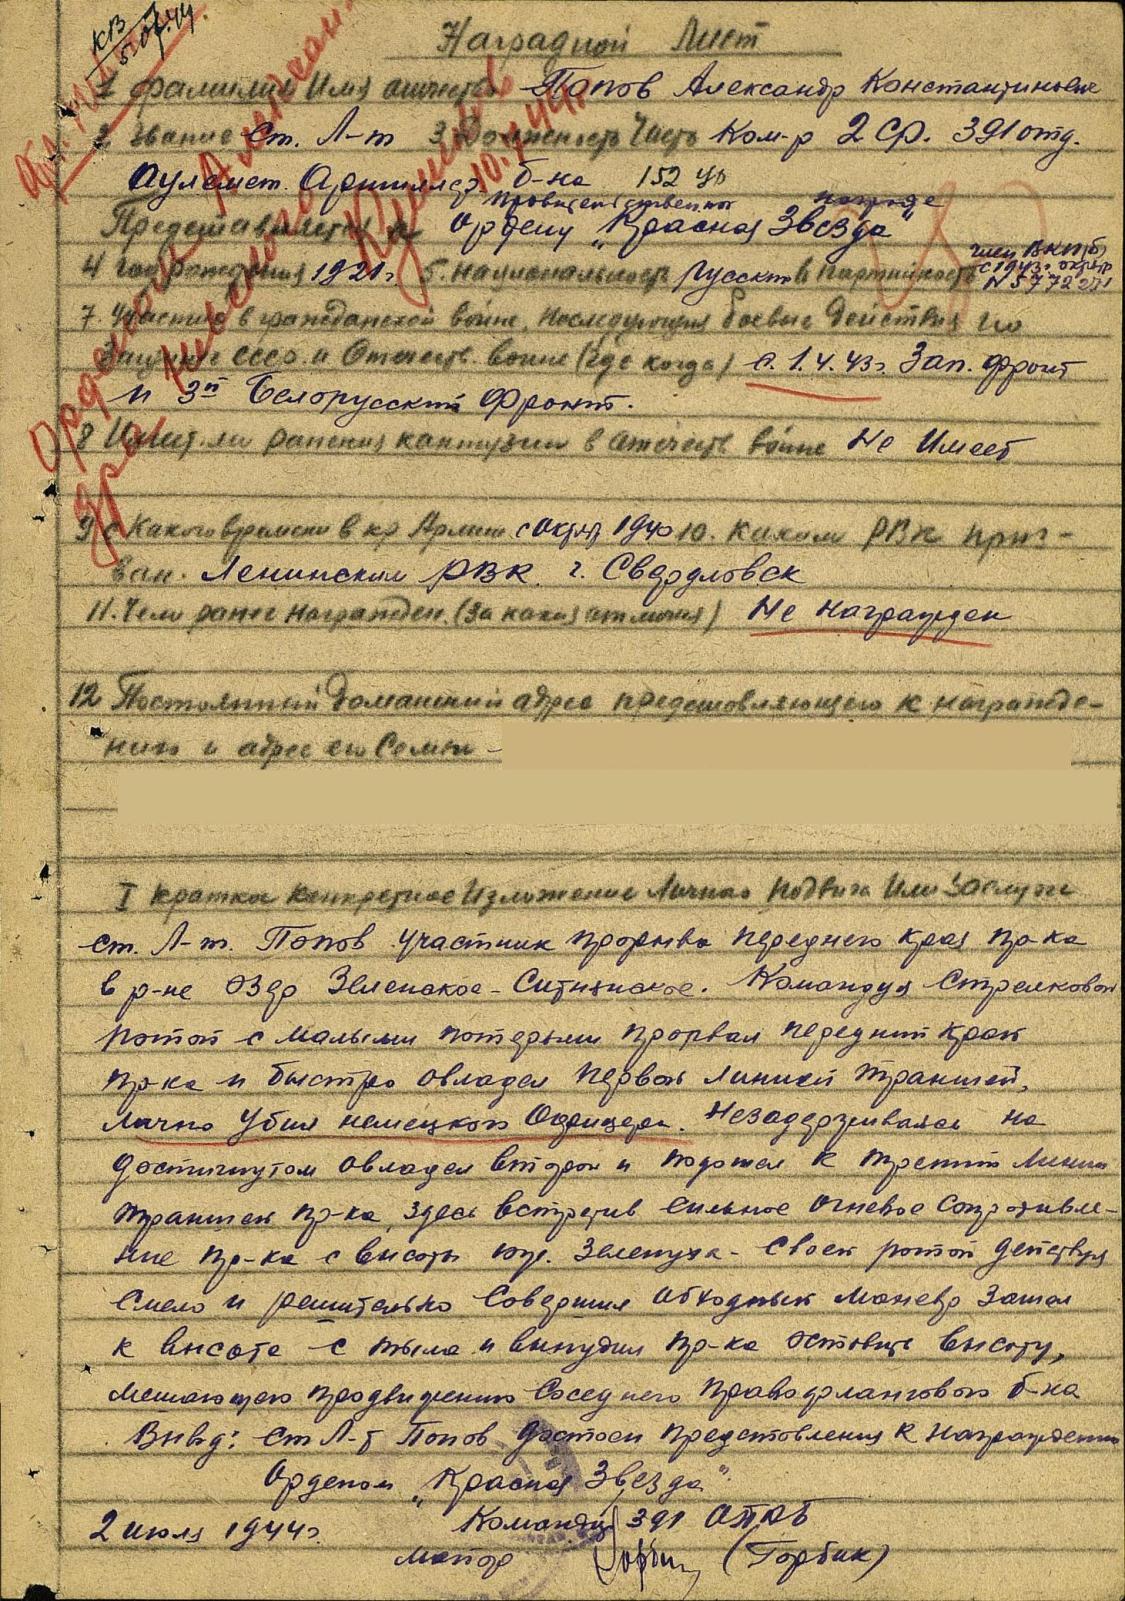 КВ 5.07.44
Наградной Лист
1 фамилия Имя отчество Попов Александр Константинович
2 Звание Ст. Л-т 3 Должность Часть Ком-р 2 Ср. 391 отд.
Пулемет. Артиллер. б-на 152 ур
правительственной награде
Представляется к Ордену „Красная Звезда"
член ВКП(б)
4 год рождения 1921 г 5. Национальность Русский 6 Партийность с 1943 г
7. Участие в гражданской войне, последующих боевые действия по
Защите СССР и Отечеств. войне (где когда) с 1.4.43 г. Зап. фронт
и 3й Белорусский фронт.
8 Имеет ли ранения контузии в отечеств войне Не Имеет
9 с Какого времени в кр Армии с Октяб 1940 10. Каким РВК приз-
ван. Ленинским РВК. г. Свердловск
11. Чем ранее награжден. (За какие отличия) Не Награжден
12 Постоянный домашний адрес представляющего к награжде-
нию и адрес его Семьи -
Орденом Александра Невского
I Краткое конкретное Изложение Личного подвига Или Заслуги
ст. Л-т. Попов участник прорыва переднего края пр-ка
в р-не озер Зеленское - Ситнянское. Командуя Стрелковой
ротой с малыми потерями прорвал передний край
пр-ка и быстро овладел первой линией траншей,
лично убил немецкого Офицера. Незадерживаясь на
достигнутом овладел второй и подошел к третий Линии
траншей пр-ка, здесь встретив сильное огневое сопротивле-
ние пр-ка с высоты юж. Зеленуха - своей ротой действуя
смело и решительно Совершил обходный маневр Зашел
к высоте с тыла и вынудил пр-ка оставить высоту,
мешающею продвижению Соседнего правофлангового б-на
Вывод: Ст Л-т Попов достоен представления к награждению
Орденом „Красная Звезда".
2 июля 1944 г. Командир 391 ОПАБ
майор (Горбик)